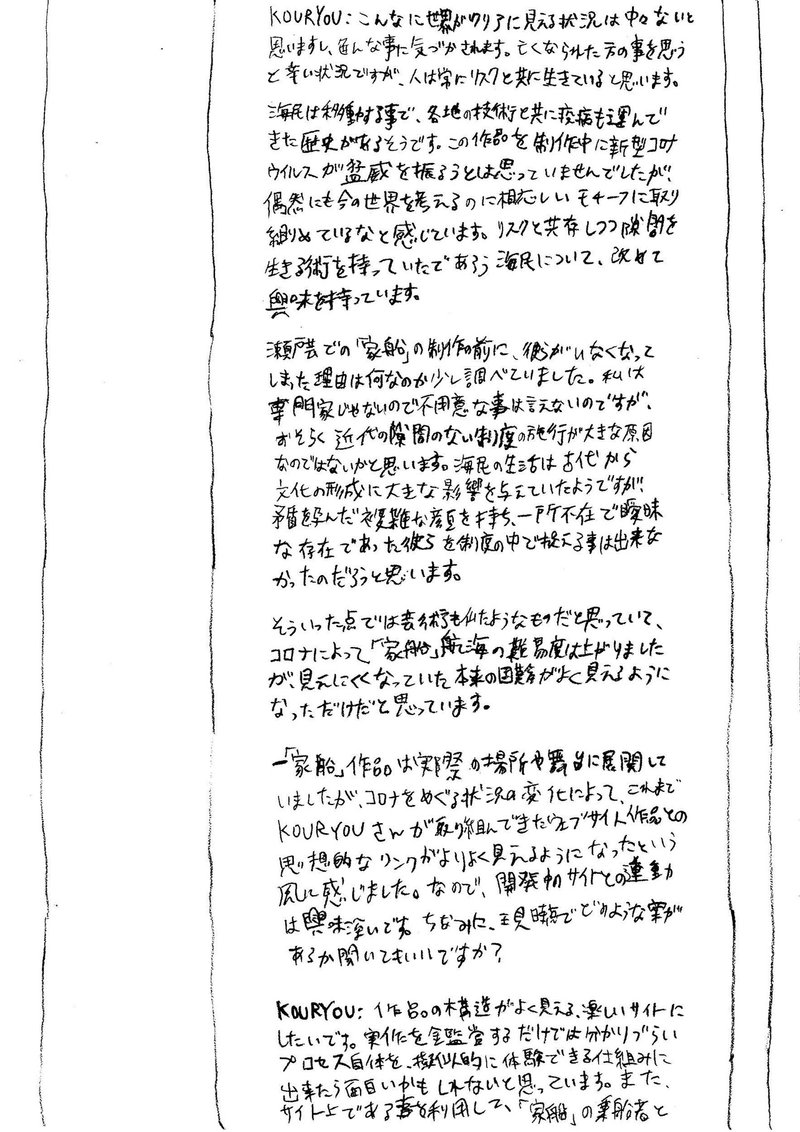 KOURYOU：こんなに世界がクリアに見える状況は中々ないと
思いますし、色んな事に気づかされます。亡くなられた方の事を思う
と辛い状況ですが、人は常にリスクと共に生きていると思います。
海民は移動する事で、各地の技術と共に疫病も運んで
きた歴史があるそうです。この作品を制作中に新型コロナ
ウイルスが猛威を振るうとは思っていませんでしたが、
偶然にも今の世界を考えるのに相応しいモチーフに取り
組めているなと感じています。リスクと共存しつつ隙間を
生きる術を持っていたであろう海民について、改めて
興味を持っています。
瀬戸芸での「家船」の制作の前に、彼らがいなくなって
しまった理由は何なのか少し調べていました。私は
専門家じゃないので不用意な事は言えないのですが、
おそらく近代の隙間のない制度の施行が大きな原因
なのではないかと思います。海民の生活は古代から
文化の形成に大きな影響を与えていたようですが
矛盾を孕んだ複雑な顔を持ち、一所不在で曖昧
な存在であった彼らを制度の中で捉える事は出来な
かったのだろうと思います。
そういった点では芸術も似たようなものだと思っていて、
コロナによって「家船」航海の難易度は上がりました
が、見えにくくなっていた本来の困難がよく見えるように
なっただけだと思っています。
ー「家船」作品は実際の場所や舞台に展開して
いましたが、コロナをめぐる状況の変化によって、これまで
KOURYOUさんが取り組んできたウェブサイト作品との
思想的なリンクがよりよく見えるようになったという
風に感じました。なので、開発中のサイトとの連動
は興味深いです。ちなみに、現時点でどのような案が
あるか聞いてもいいですか？
KOURYOU：作品の構造がよく見える、楽しいサイトに
したいです。実作を鑑賞するだけでは分かりづらい
プロセス自体を、擬似的に体験できる仕組みに
出来たら面白いかもしれないと思っています。また、
サイト上である事を利用して、「家船」の乗船者と